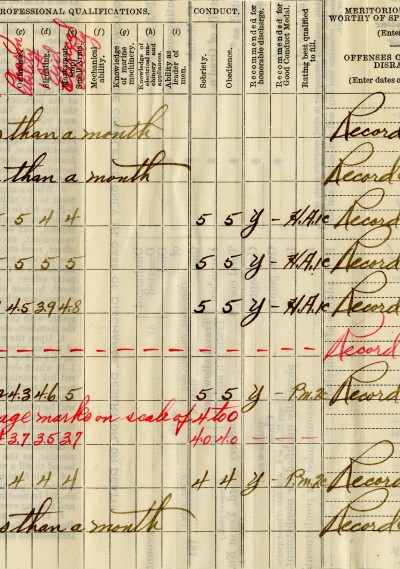 ROFESSIONAL QUALIFICATIONS. CONDUCT. MERITORIO
WORTHY OF SP
(Enter
OFFENSES C
DISRA
(Enter dates o
(c) (d) (f) (g) (h) (i)
Mechanical ability.
Knowledge of marine machinery.
Knowledge of electrical machinery and appliances.
Ability as leader of men.
Sobriety.
Obedience.
Recommended for honorable discharge.
Recommended for Good Conduct Medal.
Rating best qualified to fill.
s than a month Record
than a month Record
5 5 4 4 5 5 y - H.A.1c Record
5 5 5 5 5 5 y - H.A.1c Record
4.5 3.9 4.8 5 5 y - H.A.1c Record
- - - - - - - - - - - - Record
4.3 4.6 5 5 5 y - P.m.2c Record
age marks on scale of 4 to 0
3.7 3.5 3.7 4.0 4.0 - - -
4 4 4 4 4 y - P.m.2c Record
s than a month Record